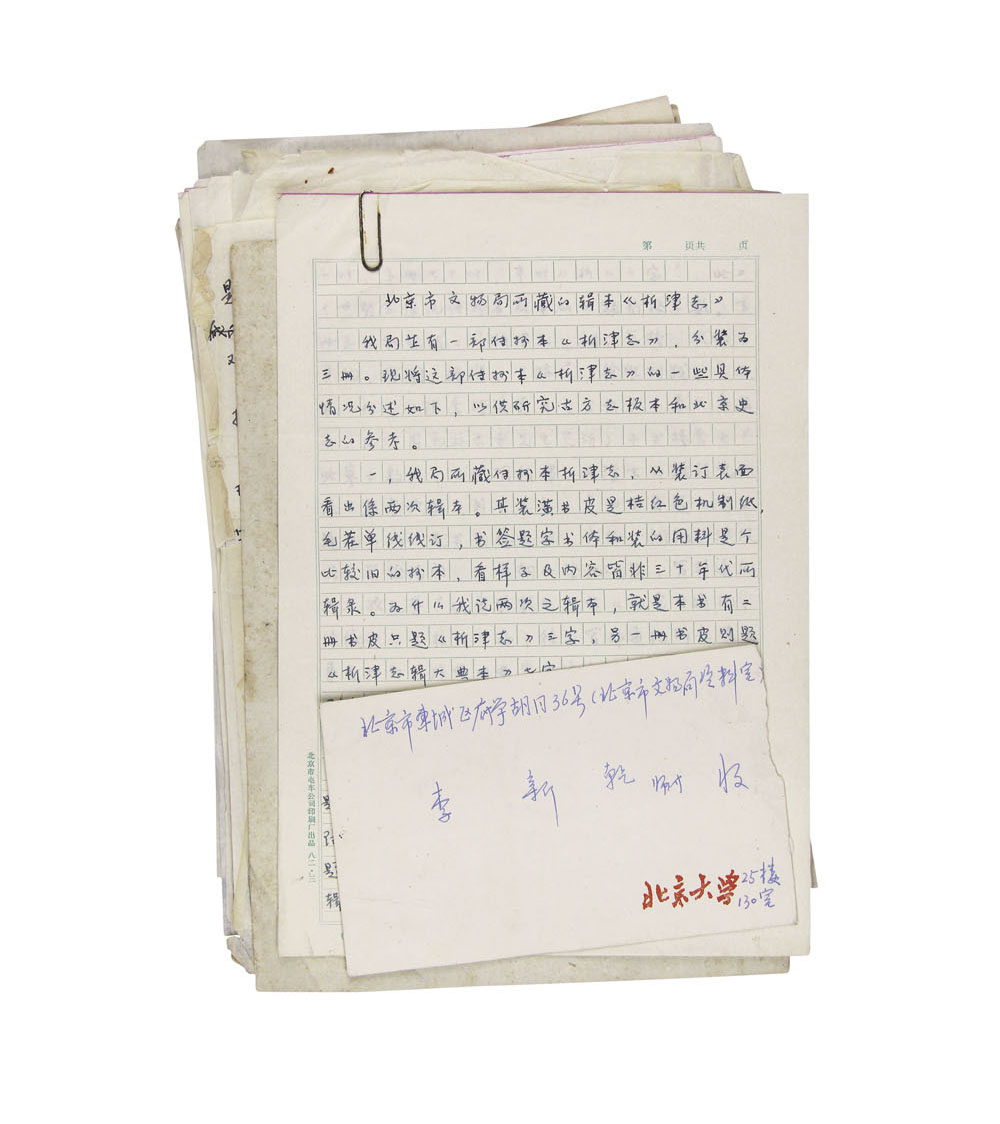 第 页共 页
北京市文物局所藏的辑本《析津志》
我局芷有一部传抄本《析津志》，分装为
三册。现将这部传抄本《析津志》的一些具体
情况分述如下，以供研究古方志板本和北京史
志的参考。
一，我局所藏传抄本析津志，从装订表面
看出係两次辑本。其装潢书皮是桔红色机制纸，
毛茬单线线订，书签题字书体和装的用料是个
比较旧的抄本，看样子及内容皆非三十年代所
辑录。为什么我说两次之辑本，就是本书有二
册书皮只题《析津志》三字，另一册书皮则题
《析津志辑大典本》七字
北京市东城区府学胡同36号(北京市文物局资料室)
李新乾师收
北京大学 25楼
130室
北京市电车公司印刷厂出品 八二·二
题
辑